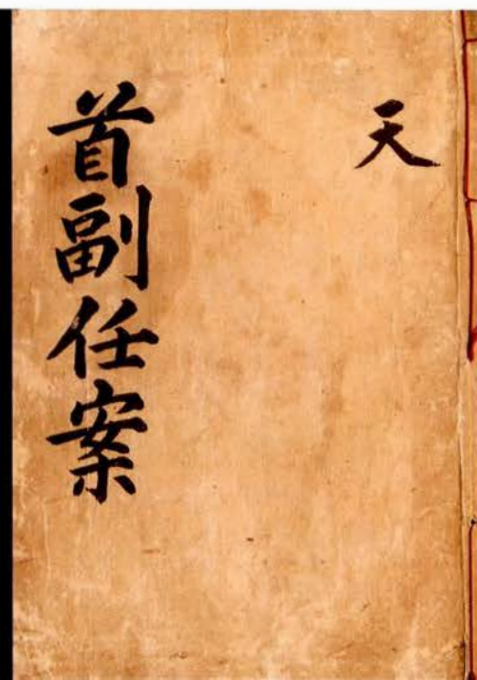 天
首副任案